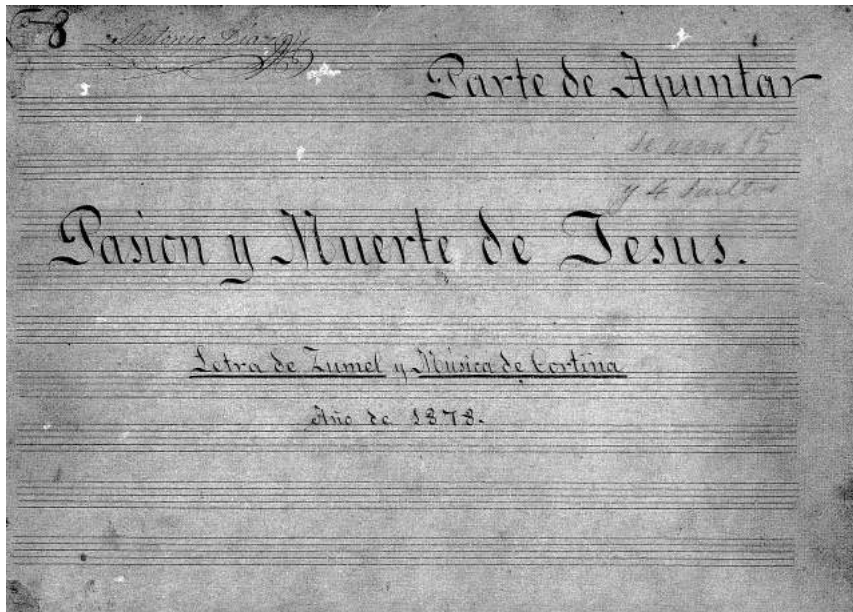 8 Antonio Diaz
Parte de Apuntar
se usan 15
y 4 sueltos
Pasion y Muerte de Jesus.
Letra de Zumel y Música de Cortina
Año de 1878.